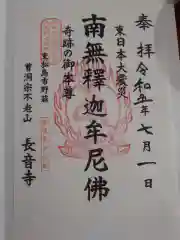 奉拝 令和五年七月一日
東日本大震災
南無釋迦牟尼佛
奇跡の御本尊
東松島市野蒜
曹洞宗不老山
長音寺